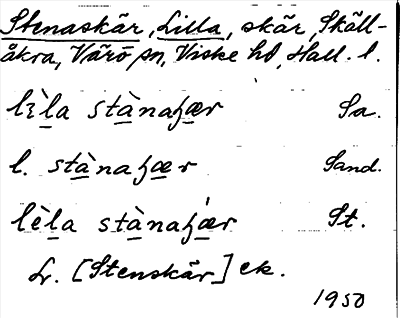 Stenaskär, Lilla, skär, Skäll-
åkra, Värö sn, Viske hd, Hall. l.
lɛ̀la stànaʃær Sa.
l. stànaʃær Sand.
lèla stànaʃær St.
Lr. [Stenskär] ek.
1950